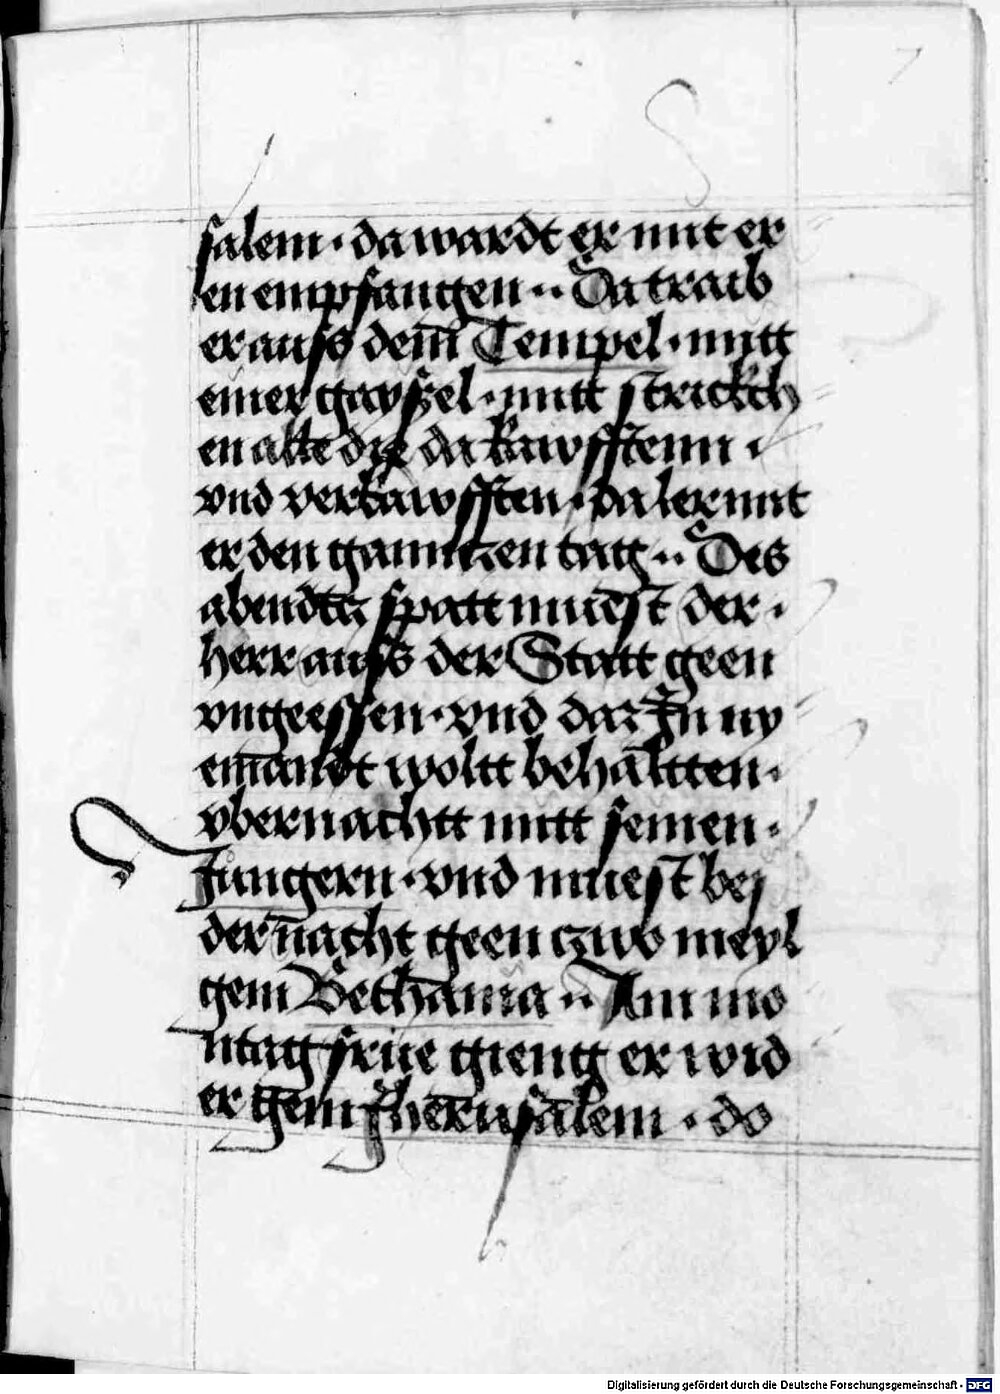 7
salem · da wardt er mit er
en empfangen ·· Da traib
er auss dem̄ Tempel · mitt
einer gayszel · mitt strickch
en alle die da kawfftenn ·
vnd verkawfften · da lernnt
er den ganntzen tag ·· Des
abendtz spatt muest der ·
herr auss der Statt geen
vngeessen · vnd dar Jn ny
emandt woltt behaltten ·
vbernachtt mitt seinen ·
Jungern · vnd muest bej
der nacht geen czwo meyl
gem Bethania ·· Am mo
ntag frue gieng er wid
er gem Jherusalem · do
Digitalisierung gefördert durch die Deutsche Forschungsgemeinschaft - DFG